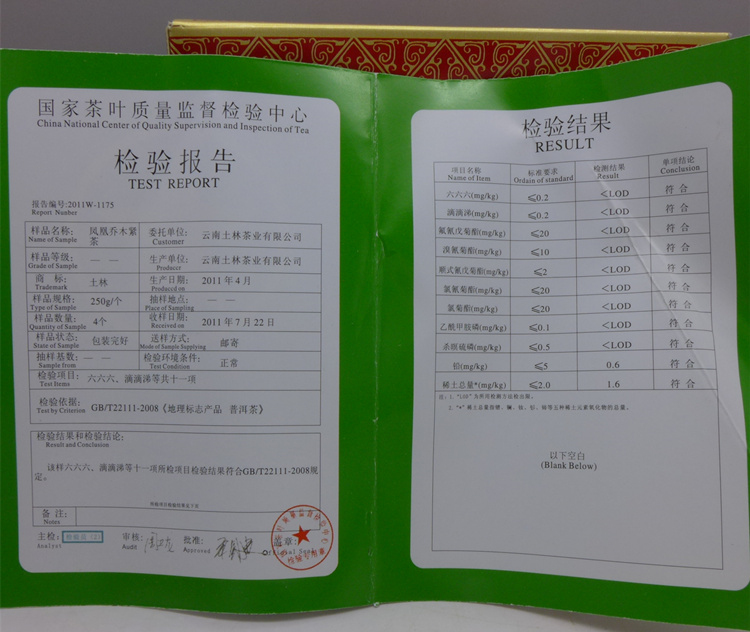 国家茶叶质量监督检验中心
China National Center of Quality Supervision and Inspection of Tea
检验报告
TEST REPORT
报告编号:2011W-1175
Report Number
样品名称: 凤凰乔木紧茶 委托单位: 云南土林茶业有限公司
Name of Sample Customer
样品等级: — — 生产单位: 云南土林茶业有限公司
Grade of Sample Producer
商 标: 土林 生产日期: 2011年4月
Trademark Produced on
样品规格: 250g/个 抽样地点: — —
Type of Sample Place of Sampling
样品数量: 4个 收样日期: 2011年7月22日
Quantity of Sample Received on
样品状态: 包装完好 送样方式: 邮寄
State of Sample Mode of Sample Supplying
抽样基数: — — 检验环境条件: 正常
Sample from Test Condition
检验项目: 六六六、滴滴涕等共十一项
Test Items
检验依据: GB/T22111-2008《地理标志产品 普洱茶》
Test by Criterion
检验结果和检验结论:
Result and Conclusion
该样六六六、滴滴涕等十一项所检项目检验结果符合GB/T22111-2008规
定。
备 注:
Notes
主检: 审核: 批准: 盖章:
Analyst Audit Approved Official Seal
检验结果
RESULT
项目名称 标准要求 检测结果 单项结论
Name of Item Ordain of standard Result Conclusion
六六六(mg/kg) ≤0.2 <LOD 符 合
滴滴涕(mg/kg) ≤0.2 <LOD 符 合
氟氰戊菊酯(mg/kg) ≤20 <LOD 符 合
溴氰菊酯(mg/kg) ≤10 <LOD 符 合
顺式氰戊菊酯(mg/kg) ≤2 <LOD 符 合
氯氰菊酯(mg/kg) ≤20 <LOD 符 合
氯菊酯(mg/kg) ≤20 <LOD 符 合
乙酰甲胺磷(mg/kg) ≤0.1 <LOD 符 合
杀螟硫磷(mg/kg) ≤0.5 <LOD 符 合
铅(mg/kg) ≤5 0.6 符 合
稀土总量*(mg/kg) ≤2.0 1.6 符 合
注: 1. "LOD"为所用检测方法检出限。
2. "*"稀土总量指镧、铈、钕、钇等五种稀土元素氧化物的总量。
以下空白
(Blank Below)